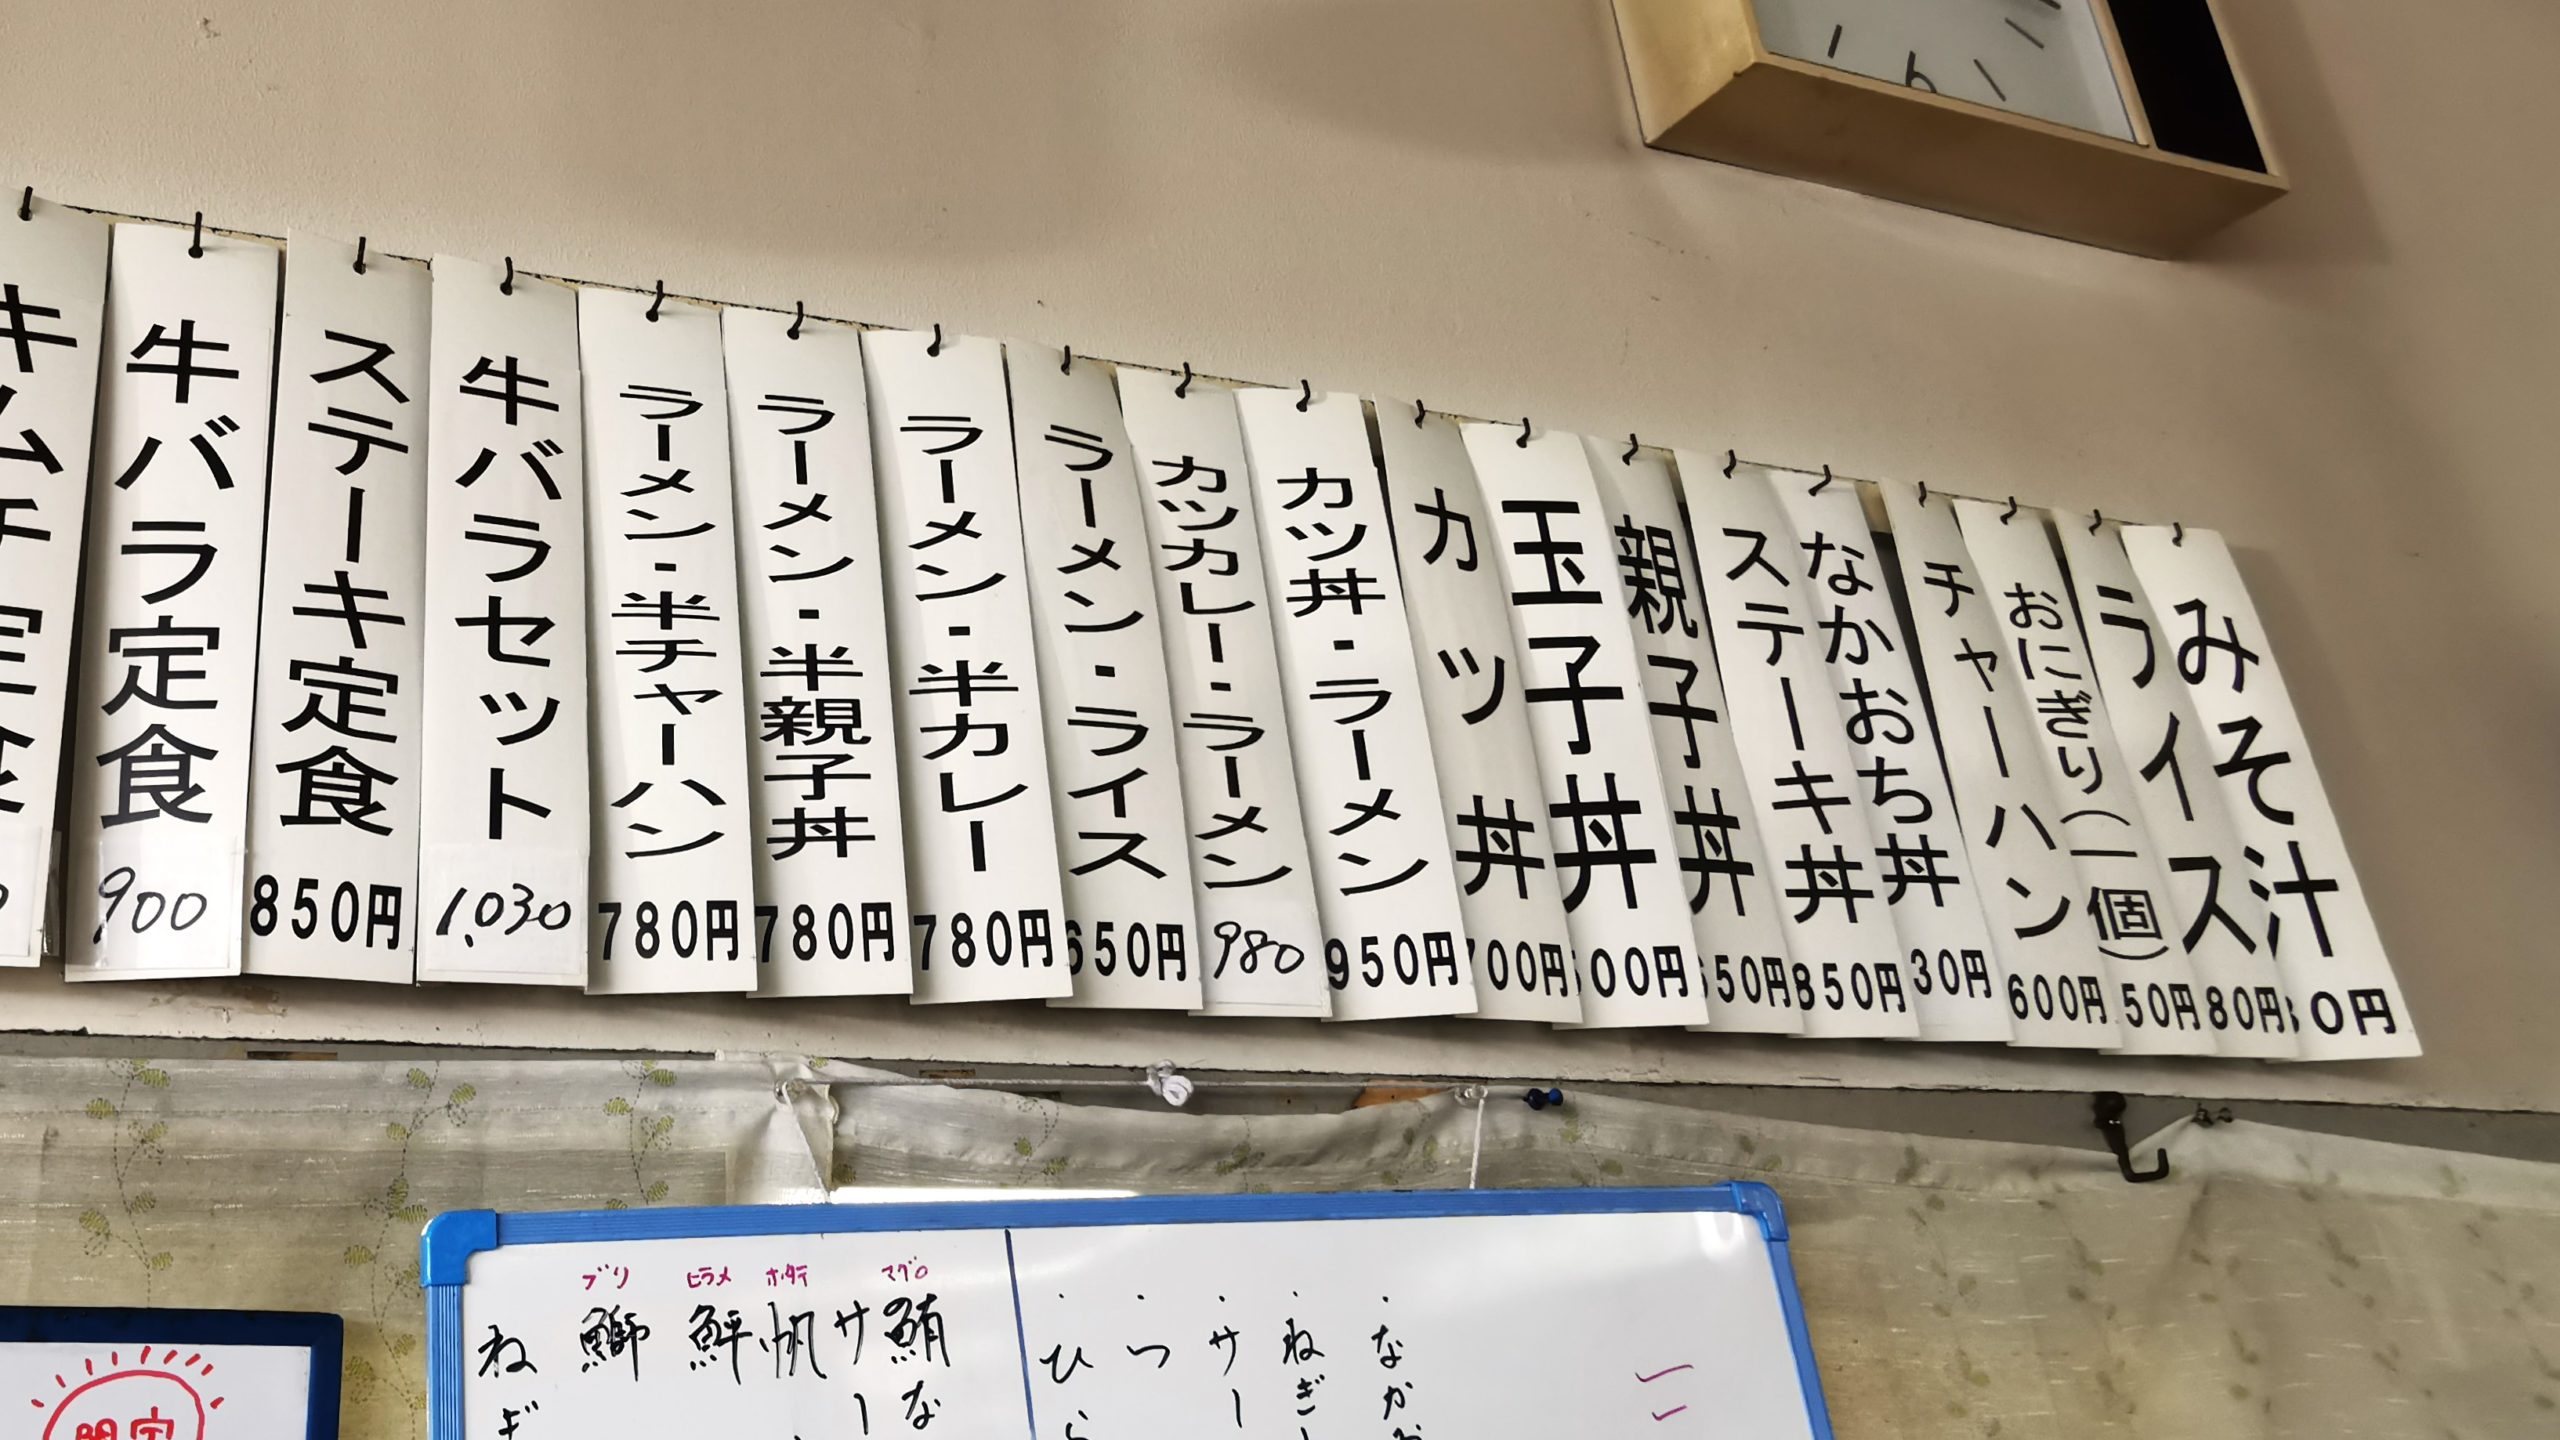 キムチ定食
牛バラ定食
900
ステーキ定食
850円
牛バラセット
1,030
ラーメン・半チャーハン
780円
ラーメン・半親子丼
780円
ラーメン・半カレー
780円
ラーメン・ライス
650円
カツカレー・ラーメン
980
カツ丼・ラーメン
950円
カツ丼
700円
玉子丼
00円
親子丼
50円
ステーキ丼
850円
なかおち丼
30円
チャーハン
600円
おにぎり(一個)
50円
ライス
80円
みそ汁
0円
6
ブリ
ヒラメ
ホタテ
マグロ
ねぎ
鰤
鮃
帆
サー
鮪な
・ひら
・つ
・サー
・ねぎ
・なかお
限定